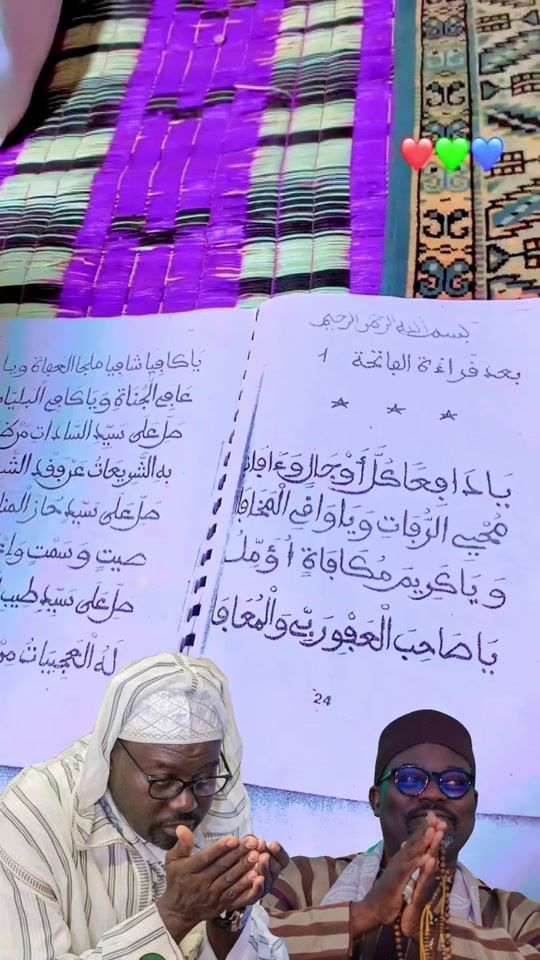 بسم الله الرحمن الرحيم
بعد قراءة الفاتحة 1
يَا دَافِعًا كُلَّ أَوْجَالٍ وَءَافَا
مُحْيِي الرُّفَاتِ وَيَا وَافِي الْمَخَافَا
وَيَا كَرِيمَ مُكَافَاةٍ أُؤَمِّلُ
يَا صَاحِبَ الْعَفْوِ رَبِّي وَالْمُعَافَا
24
يَا كَافِيًا شَافِيًا مَلْجَا الْعُفَاةِ وَيَا
عَافِي الْجُنَاةِ وَيَا كَافِي الْبَلِيَّا
صَلِّ عَلَى سَيِّدِ السَّادَاتِ مَنْ
بِهِ الشَّرِيعَاتُ عَنْ وَفْدِ
صَلِّ عَلَى سَيِّدٍ حَازَ الْمَنَا
صِيتٍ وَسَمْتٍ
صَلِّ عَلَى سَيِّدٍ طَيِّبِ
لَهُ الْعَجِيبَاتُ مِنْ